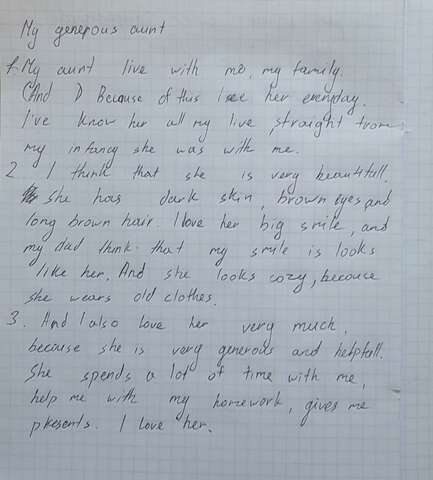 My generous aunt
1. My aunt live with me, my family.
(And I) Because of this I see her everyday.
I've know her all my live, straight from
my infancy she was with me.
2. I think that she is very beautifull.
She has dark skin, brown eyes and
long brown hair. I love her big smile, and
my dad think that my smile is looks
like her. And she looks cozy, because
she wears old clothes.
3. And I also love her very much,
because she is very generous and helpfull.
She spends a lot of time with me,
help me with my homework, gives me
presents. I love her.